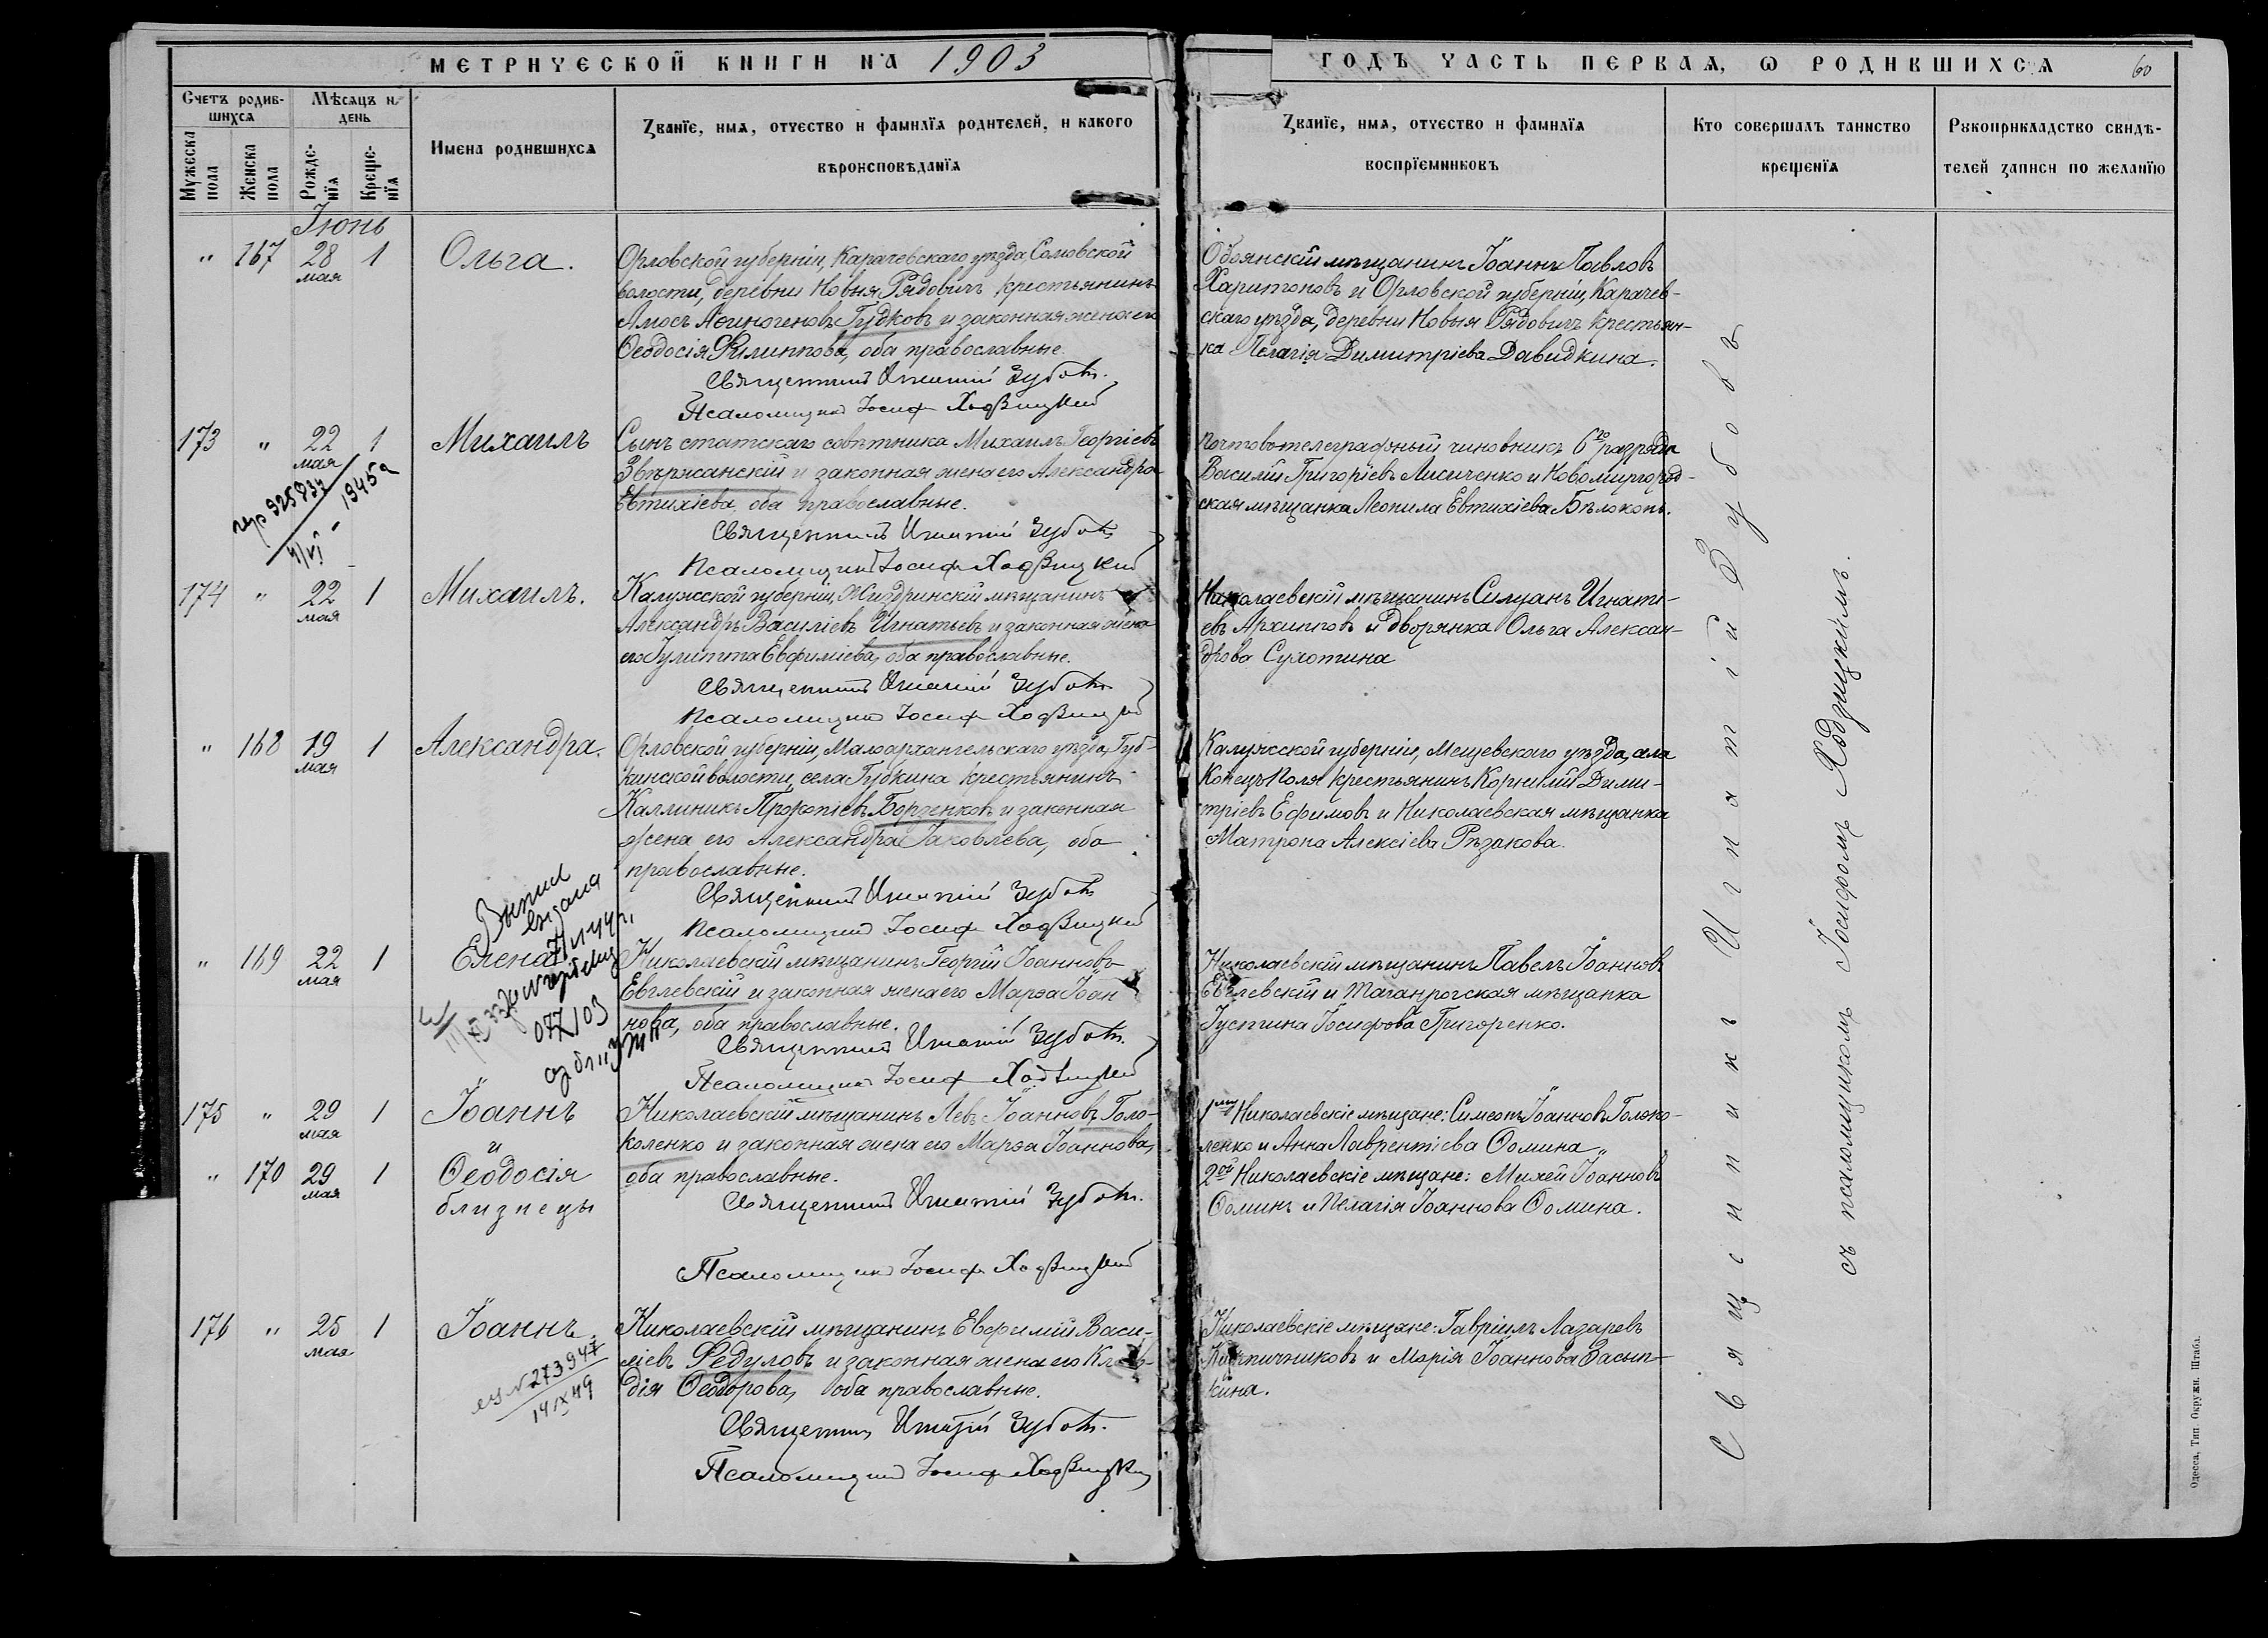 МЕТРИЧЕСКОЙ КНИГИ НА 1903
ГОДЪ ЧАСТЬ ПЕРВАѦ, Ѡ РОДИВШИХСѦ
60
Счетъ родив-
шихсѧ
Мѣсѧцъ и
день
Мужеска пола
Женска пола
Рожде-
нїѧ
Креще-
нїѧ
Имена родившихсѧ
Званїе, имѧ, отчество и фамилїѧ родителей, и какого
вѣроисповѣданїѧ
Званїе, имѧ, отчество и фамилїѧ
воспрїемниковъ
Кто совершалъ таинство
крещенїѧ
Рꙋкоприкладство свидѣ-
телей записи по желанїю
Іюнь
" 167 28 мая 1 Ольга.
Орловской губерніи, Карачевскаго уѣзда Сомовской
волости, деревни Новыя Рядовичъ крестьянинъ
Амосъ Аѳиногеновъ Гудковъ и законная жена его
Ѳеодосія Филиппова, оба православные.
Священникъ Игнатій Зубовъ.
Псаломщикъ Іосифъ Ходзицкій
Обоянскій мѣщанинъ Іоаннъ Павловъ
Харитоновъ и Орловской губерніи, Карачев-
скаго уѣзда, деревни Новыя Рядовичъ крестьян-
ка Пелагія Димитріева Давидкина.
173 " 22 мая 1 Михаилъ
1945
Сынъ статскаго совѣтника Михаилъ Георгіевъ
Звѣржанскій и законная жена его Александра
Евтихіева, оба православные.
Священникъ Игнатій Зубовъ
Псаломщикъ Іосифъ Ходзицкій
Почтово-телеграфный чиновникъ 6го разряда
Василій Григоріевъ Лисиченко и Новомиргород-
ская мѣщанка Леонила Евтихіева Бѣлоконь.
174 " 22 мая 1 Михаилъ.
Калужской губерніи, Жиздринскій мѣщанинъ
Александръ Василіевъ Игнатьевъ и законная жена
его Іулитта Евфиміева, оба православные.
Священникъ Игнатій Зубовъ
Псаломщикъ Іосифъ Ходзицкій
Николаевскій мѣщанинъ Силуанъ Игнати-
евъ Архиповъ и дворянка Ольга Алексан-
дрова Сухотина
" 168 19 мая 1 Александра.
Орловской губерніи, Малоархангельскаго уѣзда, Губ-
кинской волости, села Губкина крестьянинъ
Каллиникъ Прокопіевъ Борзенковъ и законная
жена его Александра Іаковлева, оба
православные.
Священникъ Игнатій Зубовъ
Псаломщикъ Іосифъ Ходзицкій
Калужской губерніи, Мещевскаго уѣзда, села
Конецъ Поля крестьянинъ Корнилій Дими-
тріевъ Ефимовъ и Николаевская мѣщанка
Матрона Алексіева Рѣзакова.
" 169 22 мая 1 Елена
Николаевскій мѣщанинъ Георгій Іоанновъ
Евглевскій и законная жена его Марѳа Іоан
нова, оба православные.
Священникъ Игнатій Зубовъ.
Псаломщикъ Іосифъ Ходзицкій
Николаевскій мѣщанинъ Павелъ Іоанновъ
Евглевскій и Таганрогская мѣщанка
Іустина Іосифова Григоренко.
175 " 29 мая 1 Іоаннъ
и
" 170 29 мая 1 Ѳеодосія
близнецы
Николаевскій мѣщанинъ Левъ Іоанновъ Голо-
коленко и законная жена его Марѳа Іоаннова,
оба православные.
Священникъ Игнатій Зубовъ.
Псаломщикъ Іосифъ Ходзицкій
1му Николаевскіе мѣщане: Симеонъ Іоанновъ Голоко-
ленко и Анна Лаврентіева Ѳомина
2ой Николаевскіе мѣщане: Михей Іоанновъ
Ѳоминъ и Пелагія Іоаннова Ѳомина.
176 " 25 мая 1 Іоаннъ.
№ 273947
14 IX 49
Николаевскій мѣщанинъ Евфимій Васи-
ліевъ Федуловъ и законная жена его Клав-
дія Ѳеодорова, оба православные.
Священникъ Игнатій Зубовъ.
Псаломщикъ Іосифъ Ходзицкій
Николаевскіе мѣщане: Гавріилъ Лазаревъ
Кирпичниковъ и Марія Іоаннова Засып-
кина.
Священникъ Игнатій Зубовъ
съ псаломщикомъ Іосифомъ Ходзицкимъ.
Одесса, Тип. Окружн. Штаба.